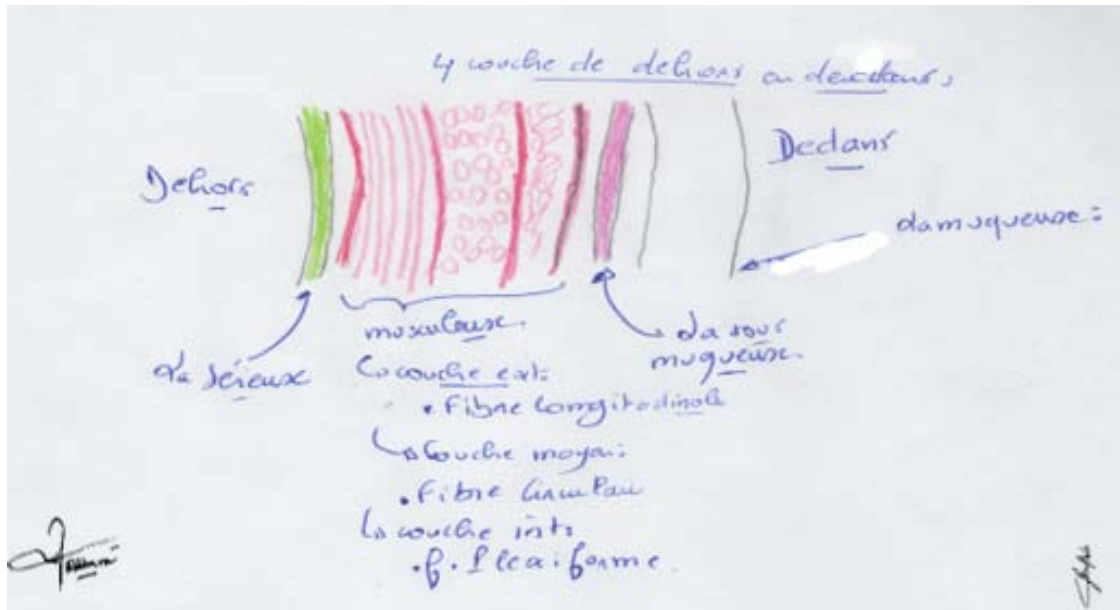 4 couche de dehors en dedans,
Dehors
Dedans
La muqueuse:
musculeuse.
La séreuse
La sous
muqueuse.
couche ext:
• Fibre longitodinale
couche moyen:
• Fibre
couche int:
• f. Plexiforme.